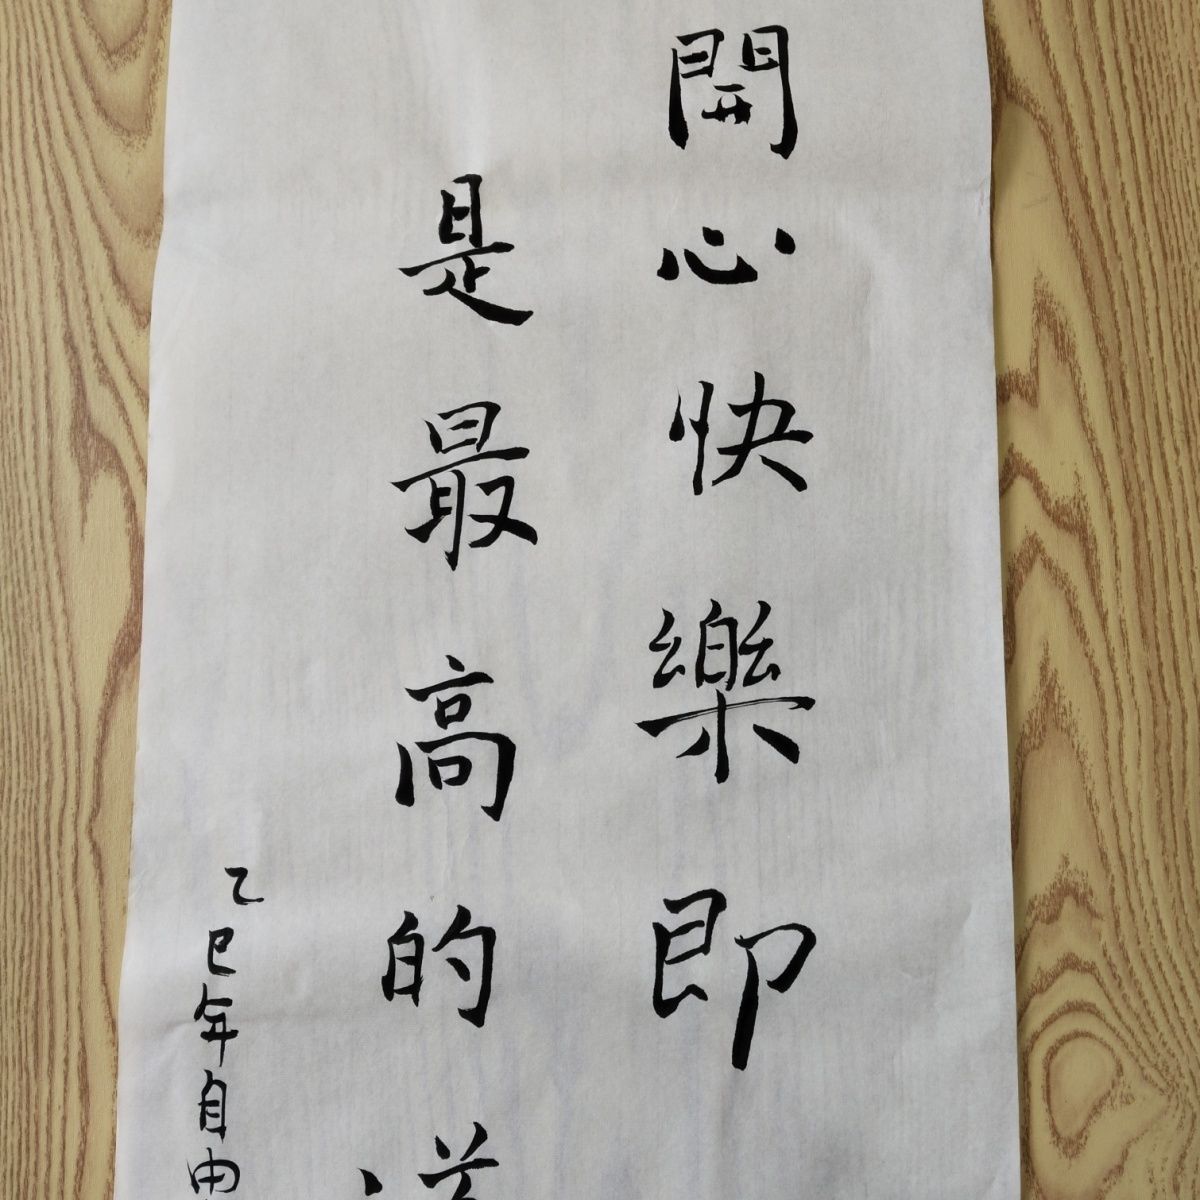 開心快樂即
是最高的道
乙巳年自由